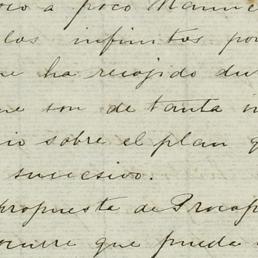 a poco Manuc
los infinitos po
ha recojido du
e son de tanta i
io sobre el plan q
sucesivo.
propuesta de Procop
ocurre que pueda